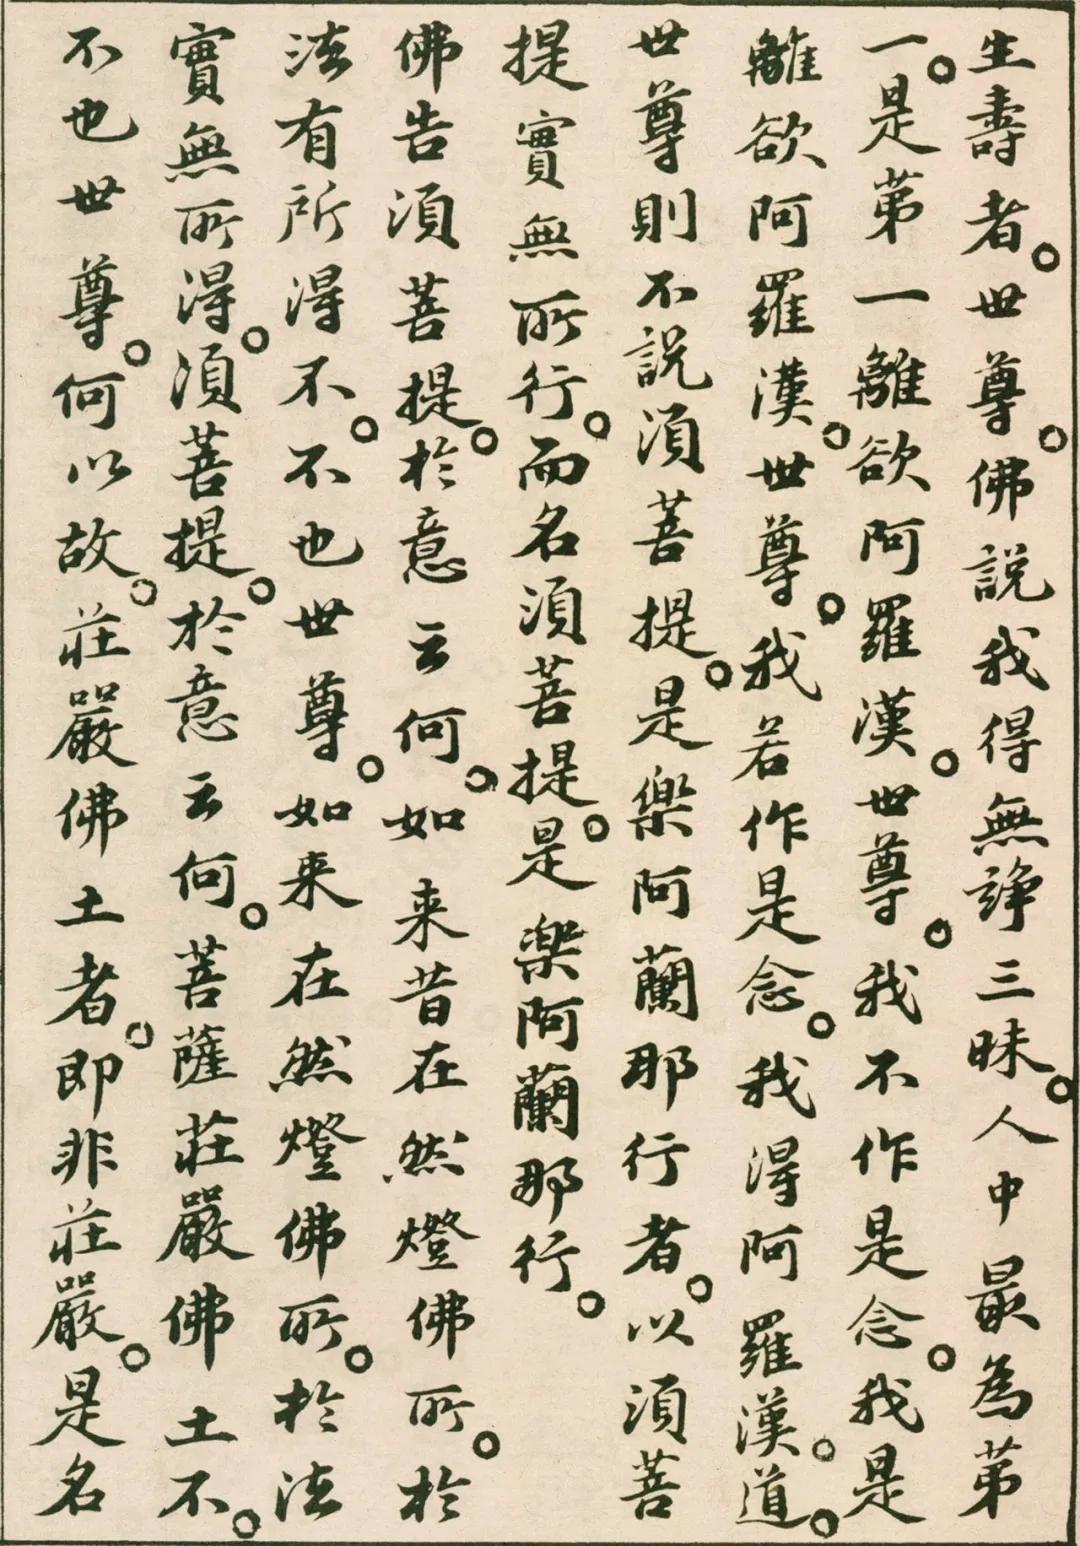 生壽者。世尊。佛說我得無諍三昧。人中最為第
一。是第一離欲阿羅漢。世尊。我不作是念。我是
離欲阿羅漢。世尊。我若作是念。我得阿羅漢。道。
世尊則不說須菩提。是樂阿蘭那行者。以須菩
提實無所行。而名須菩提。是樂阿蘭那行。
佛告須菩提。於意云何。如来昔在然燈佛所。於
法有所得不。不也世尊。如来在然燈佛所。於法
實無所得。須菩提。於意云何。菩薩莊嚴佛土不。
不也世尊。何以故。莊嚴佛土者。即非莊嚴。是名